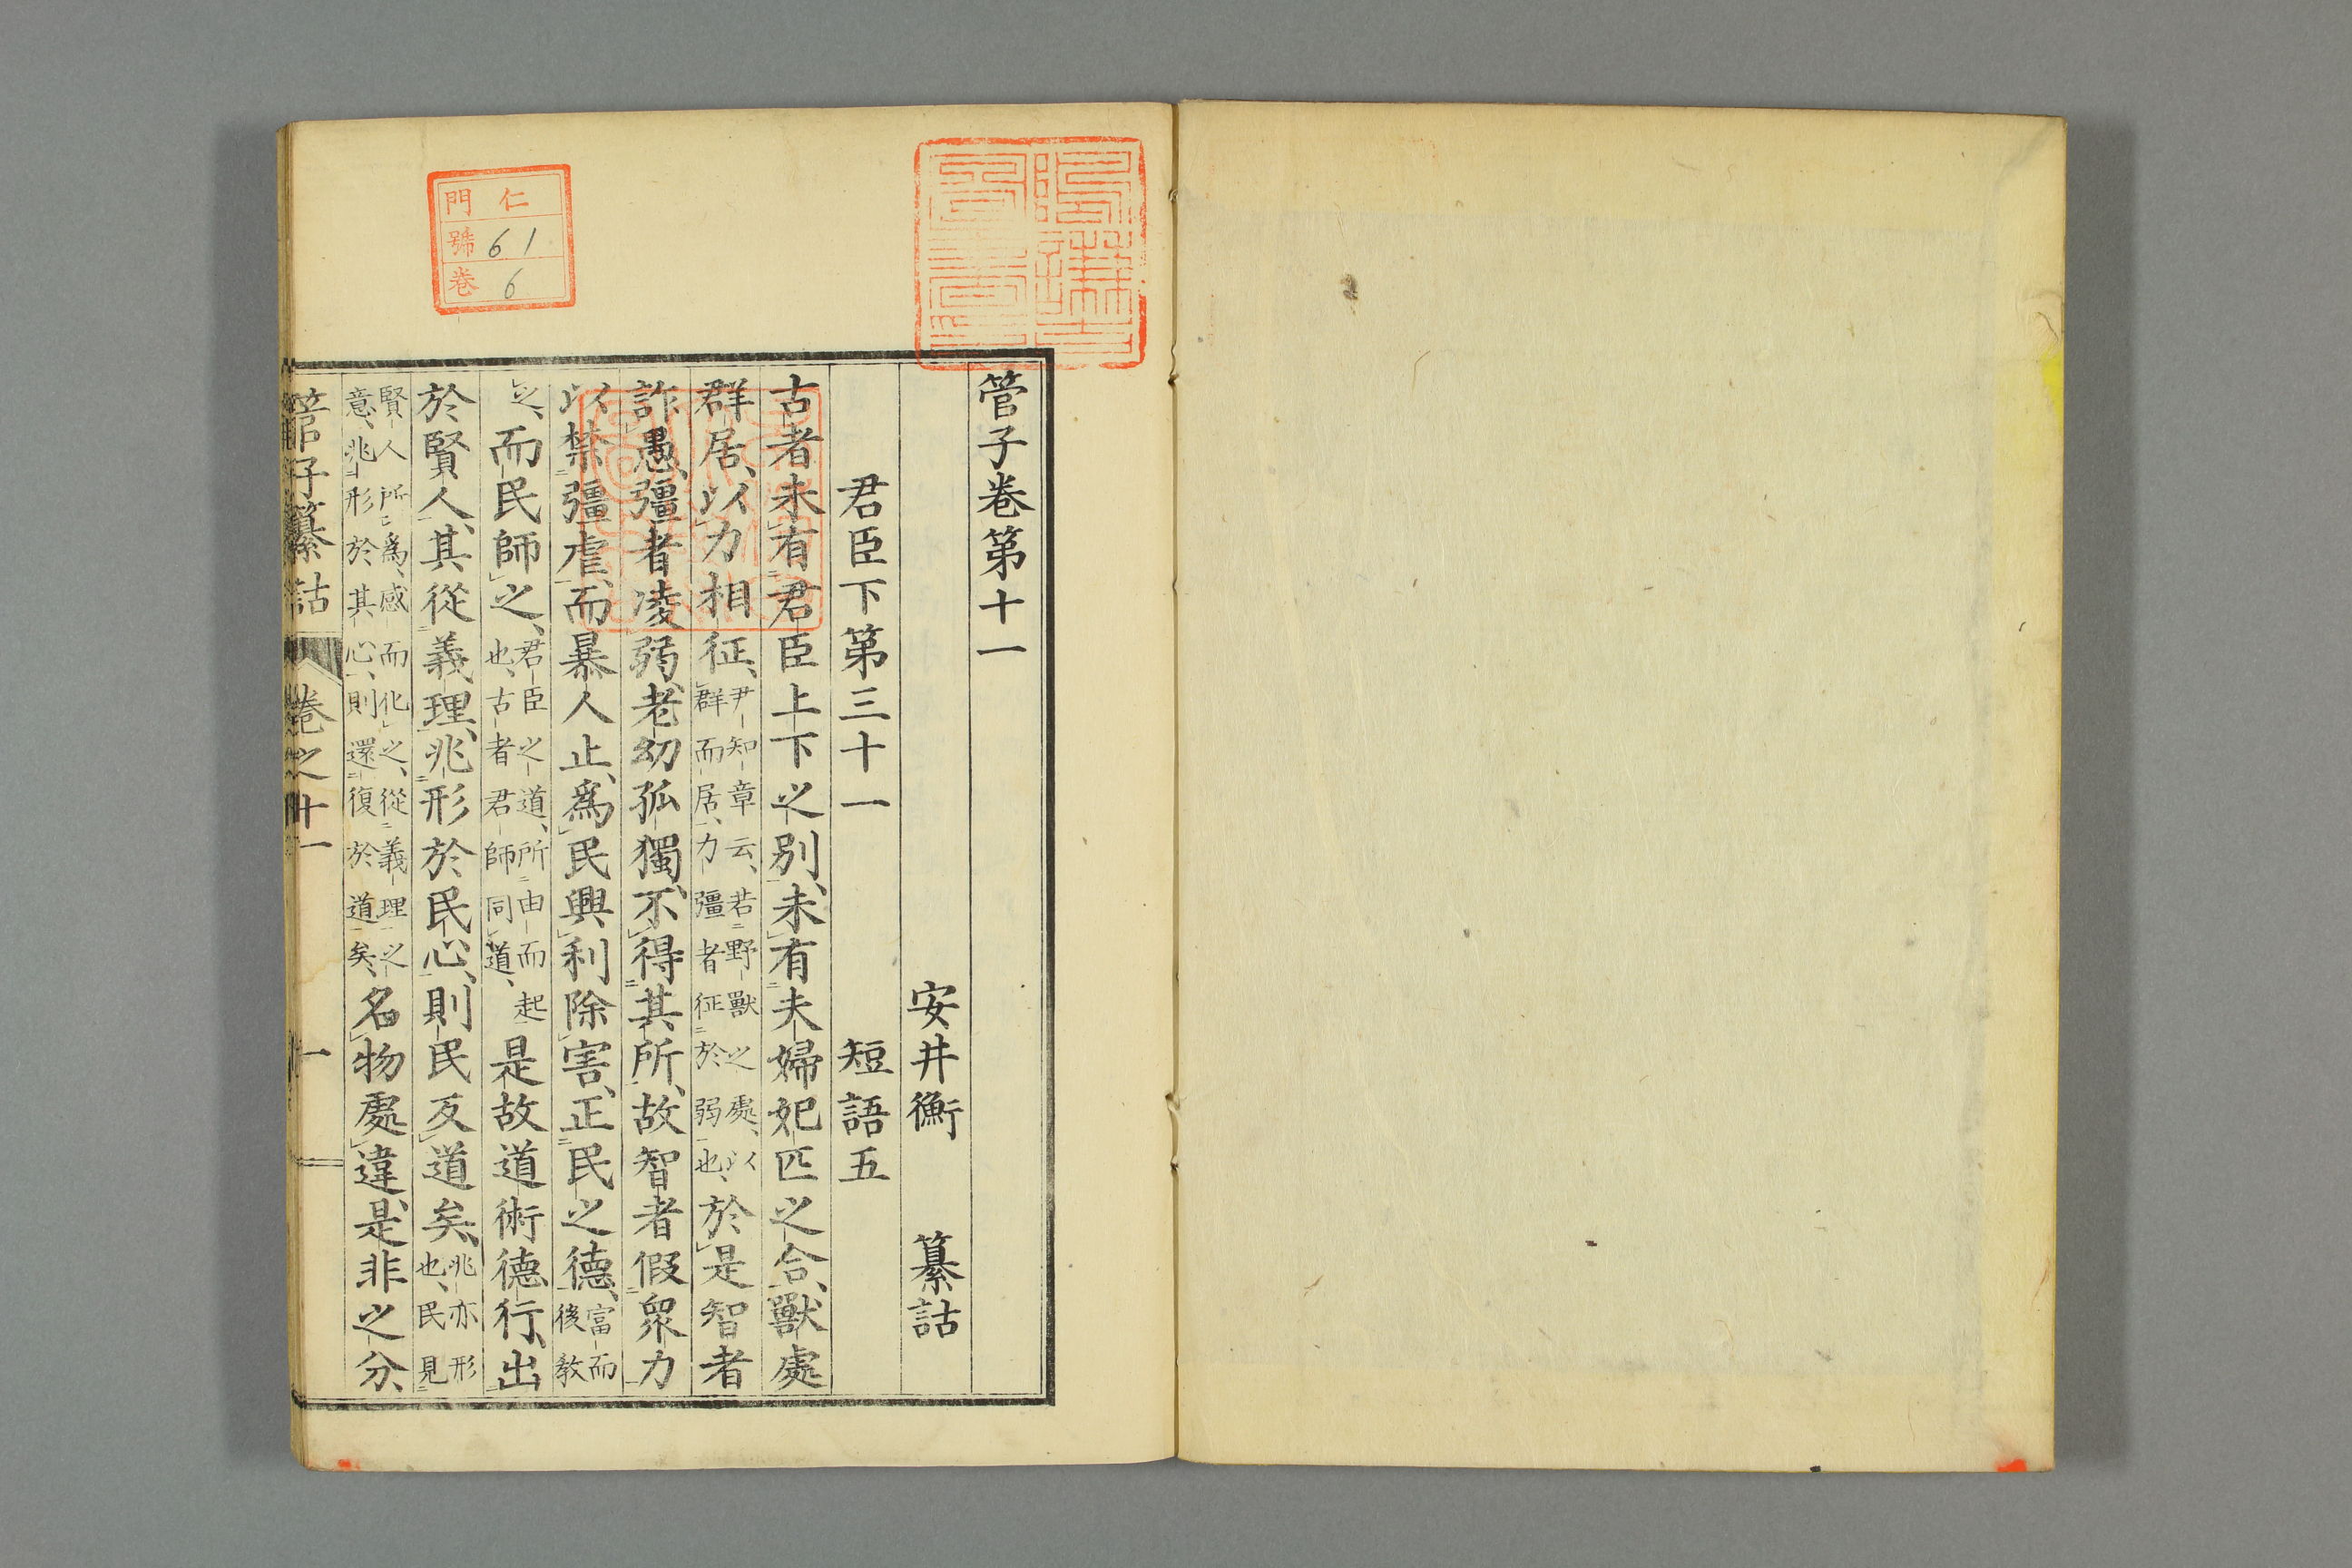 管子卷第十一
安井衡 纂詁
君臣下第三十一 短語五
古者未有君臣上下之別、未有夫婦妃匹之合、獸處
群居、以力相征、尹知章云、若野獸之處、以群而居、力彊者征於弱也、於是智者
詐愚、彊者凌弱、老幼孤獨、不得其所、故智者假眾力
以禁彊虐、而暴人止、爲民興利除害、正民之德、富而後教
之、而民師之、君臣之道、所由而起也、古者君師同道、是故道術德行、出
於賢人、其從義理、兆形於民心、則民反道矣、兆亦形也、民見
賢人所爲、感而化之、從義理之意、兆形於其心、則還復於道矣、名物處違、是非之分、
管子纂詁 卷之十一 一
仁
門
號 61
卷 6